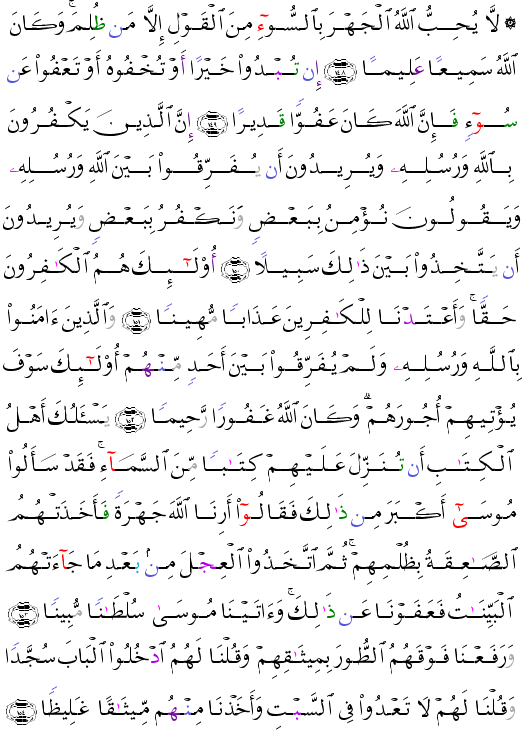 ۞ لَّا يُحِبُّ ٱللَّهُ ٱلْجَهْرَ بِٱلسُّوٓءِ مِنَ ٱلْقَوْلِ إِلَّا مَن ظُلِمَ ۚ وَكَانَ
ٱللَّهُ سَمِيعًا عَلِيمًا ﴿١٤٨﴾ إِن تُبْدُوا۟ خَيْرًا أَوْ تُخْفُوهُ أَوْ تَعْفُوا۟ عَن
سُوٓءٍ فَإِنَّ ٱللَّهَ كَانَ عَفُوًّا قَدِيرًا ﴿١٤٩﴾ إِنَّ ٱلَّذِينَ يَكْفُرُونَ
بِٱللَّهِ وَرُسُلِهِۦ وَيُرِيدُونَ أَن يُفَرِّقُوا۟ بَيْنَ ٱللَّهِ وَرُسُلِهِۦ
وَيَقُولُونَ نُؤْمِنُ بِبَعْضٍ وَنَكْفُرُ بِبَعْضٍ وَيُرِيدُونَ
أَن يَتَّخِذُوا۟ بَيْنَ ذَٰلِكَ سَبِيلًا ﴿١٥٠﴾ أُو۟لَٰٓئِكَ هُمُ ٱلْكَٰفِرُونَ
حَقًّا ۚ وَأَعْتَدْنَا لِلْكَٰفِرِينَ عَذَابًا مُّهِينًا ﴿١٥١﴾ وَٱلَّذِينَ ءَامَنُوا۟
بِٱللَّهِ وَرُسُلِهِۦ وَلَمْ يُفَرِّقُوا۟ بَيْنَ أَحَدٍ مِّنْهُمْ أُو۟لَٰٓئِكَ سَوْفَ
يُؤْتِيهِمْ أُجُورَهُمْ ۗ وَكَانَ ٱللَّهُ غَفُورًا رَّحِيمًا ﴿١٥٢﴾ يَسْـَٔلُكَ أَهْلُ
ٱلْكِتَٰبِ أَن تُنَزِّلَ عَلَيْهِمْ كِتَٰبًا مِّنَ ٱلسَّمَآءِ ۚ فَقَدْ سَأَلُوا۟
مُوسَىٰٓ أَكْبَرَ مِن ذَٰلِكَ فَقَالُوٓا۟ أَرِنَا ٱللَّهَ جَهْرَةً فَأَخَذَتْهُمُ
ٱلصَّٰعِقَةُ بِظُلْمِهِمْ ۚ ثُمَّ ٱتَّخَذُوا۟ ٱلْعِجْلَ مِنۢ بَعْدِ مَا جَآءَتْهُمُ
ٱلْبَيِّنَٰتُ فَعَفَوْنَا عَن ذَٰلِكَ ۚ وَءَاتَيْنَا مُوسَىٰ سُلْطَٰنًا مُّبِينًا ﴿١٥٣﴾
وَرَفَعْنَا فَوْقَهُمُ ٱلطُّورَ بِمِيثَٰقِهِمْ وَقُلْنَا لَهُمُ ٱدْخُلُوا۟ ٱلْبَابَ سُجَّدًا
وَقُلْنَا لَهُمْ لَا تَعْدُوا۟ فِى ٱلسَّبْتِ وَأَخَذْنَا مِنْهُم مِّيثَٰقًا غَلِيظًا ﴿١٥٤﴾